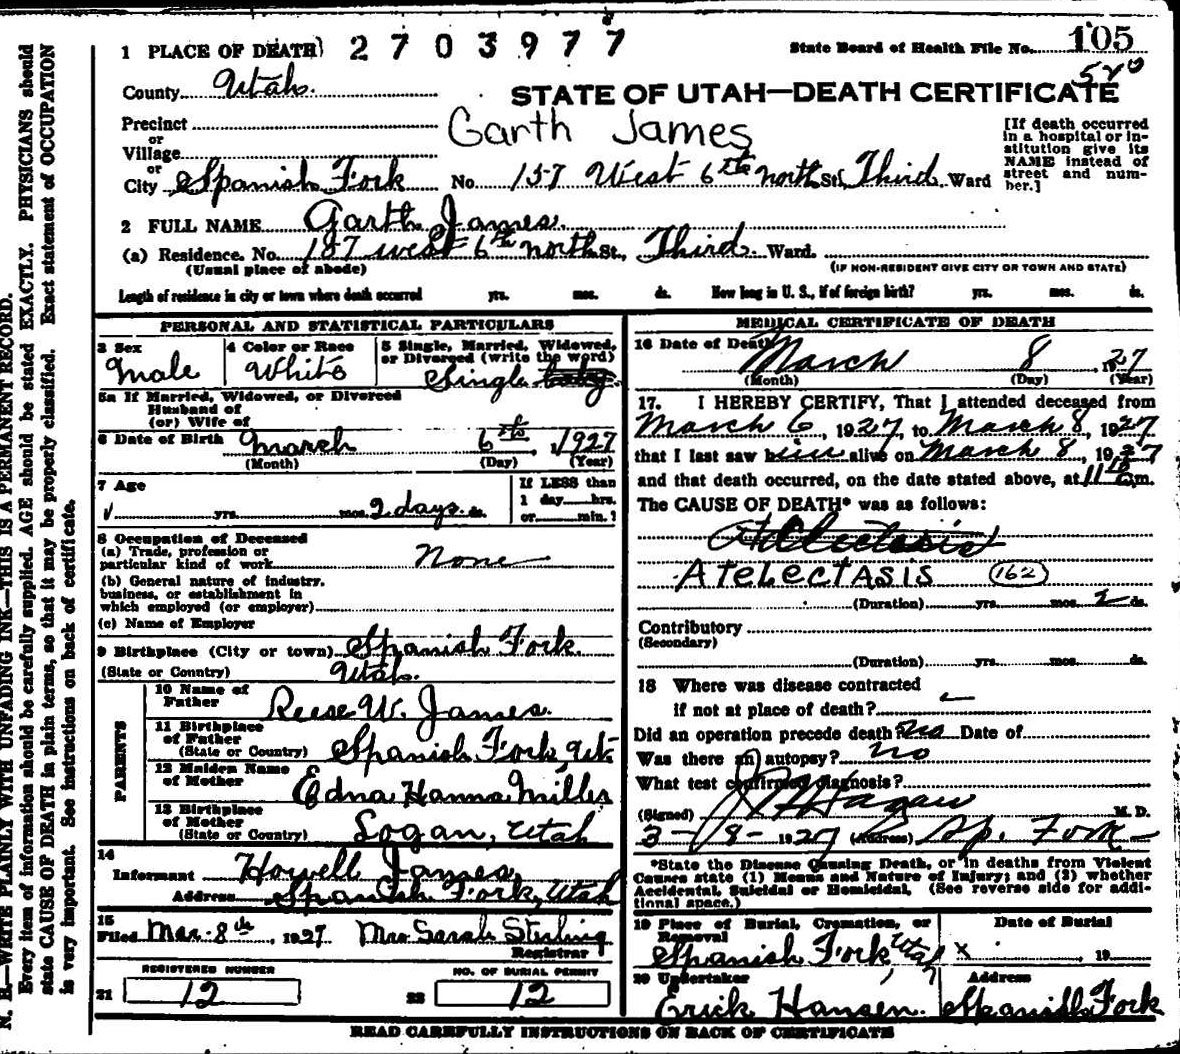 1 PLACE OF DEATH) 2 7 0 3 9 7 7
State Board of Health File No. 105
County Utah.
520
STATE OF UTAH—DEATH CERTIFICATE
Precinct
or
Village
or
City Spanish Fork
Garth James
No. 157 West 6th north St, Third Ward
[If death occurred
in a hospital or in-
stitution give its
NAME instead of
street and num-
ber.]
2 FULL NAME Garth James.
(a) Residence. No. 187 west 6th north St., Third Ward.
(Usual place of abode)
(IF NON-RESIDENT GIVE CITY OR TOWN AND STATE)
Length of residence in city or town where death occurred yrs. mos. ds. How long in U. S., if of foreign birth? yrs. mos. ds.
PERSONAL AND STATISTICAL PARTICULARS
3 Sex
Male
4 Color or Race
White
5 Single, Married, Widowed,
or Divorced (write the word)
Single baby
5a If Married, Widowed, or Divorced
Husband of
(or) Wife of
6 Date of Birth March 6th, 1927
(Month) (Day) (Year)
7 Age
yrs. mos. 2 days ds.
If LESS than
1 day hrs.
or min.?
8 Occupation of Deceased
(a) Trade, profession or
particular kind of work None
(b) General nature of industry.
business, or establishment in
which employed (or employer)
(c) Name of Employer
9 Birthplace (City or town) Spanish Fork.
(State or Country) Utah.
PARENTS
10 Name of
Father Reese W. James.
11 Birthplace
of Father
(State or Country) Spanish Fork, Ut
12 Maiden Name
of Mother Edna Hanna Miller
13 Birthplace
of Mother
(State or Country) Logan, Utah
14
Informant Howell James
Address Spanish Fork, Utah
15
Filed Mar. 8th, 1927 Mrs Sarah Stirling
Registrar
REGISTERED NUMBER
21 12
NO. OF BURIAL PERMIT
22 12
MEDICAL CERTIFICATE OF DEATH
16 Date of Death March 8, 1927
(Month) (Day) (Year)
17. I HEREBY CERTIFY, That I attended deceased from
March 6, 1927, to March 8, 1927
that I last saw him alive on March 8, 1927
and that death occurred, on the date stated above, at 11 10 a.m.
The CAUSE OF DEATH* was as follows:
Atelectasis
ATELECTASIS (162)
(Duration) yrs. mos. 2 ds.
Contributory
(Secondary)
(Duration) yrs. mos. ds.
18 Where was disease contracted
if not at place of death? —
Did an operation precede death? no Date of
Was there an autopsy? no
What test confirmed diagnosis?
(Signed) Hagan M. D.
3-/8-1927 (Address) Sp. Fork
*State the Disease Causing Death, or in deaths from Violent
Causes state (1) Means and Nature of Injury; and (2) whether
Accidental, Suicidal or Homicidal, (See reverse side for addi-
tional space.)
19 Place of Burial, Cremation, or
Removal
Spanish Fork, Utah
Date of Burial
x 19
20 Undertaker
Erick Hansen.
Address
Spanish Fork
READ CAREFULLY INSTRUCTIONS ON BACK OF CERTIFICATE
N. B.—WRITE PLAINLY WITH UNFADING INK—THIS IS A PERMANENT RECORD.
Every item of information should be carefully supplied. AGE should be stated EXACTLY. PHYSICIANS should
state CAUSE OF DEATH in plain terms, so that it may be properly classified. Exact statement of OCCUPATION
is very important. See instructions on back of certificate.